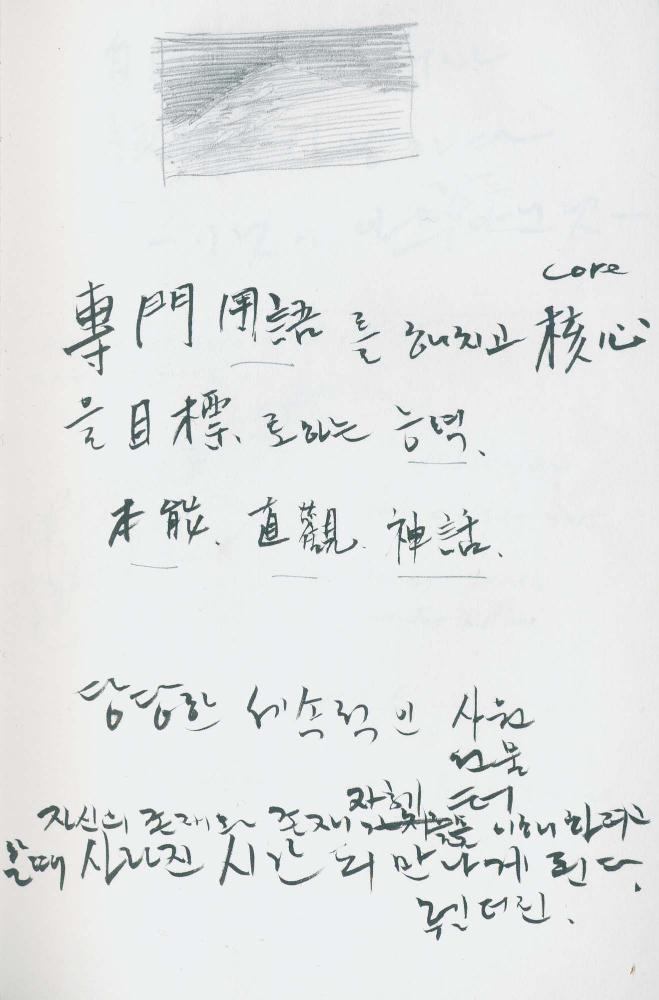 core
專門用語를 헤치고 核心
을 目標로하는 능력.
本能. 直觀. 神話.
당당한 세속적인 사원
건물
자신의 존재와 존재 자체 를 이해하려고
할때 사라진 시간과 만나게 된다.